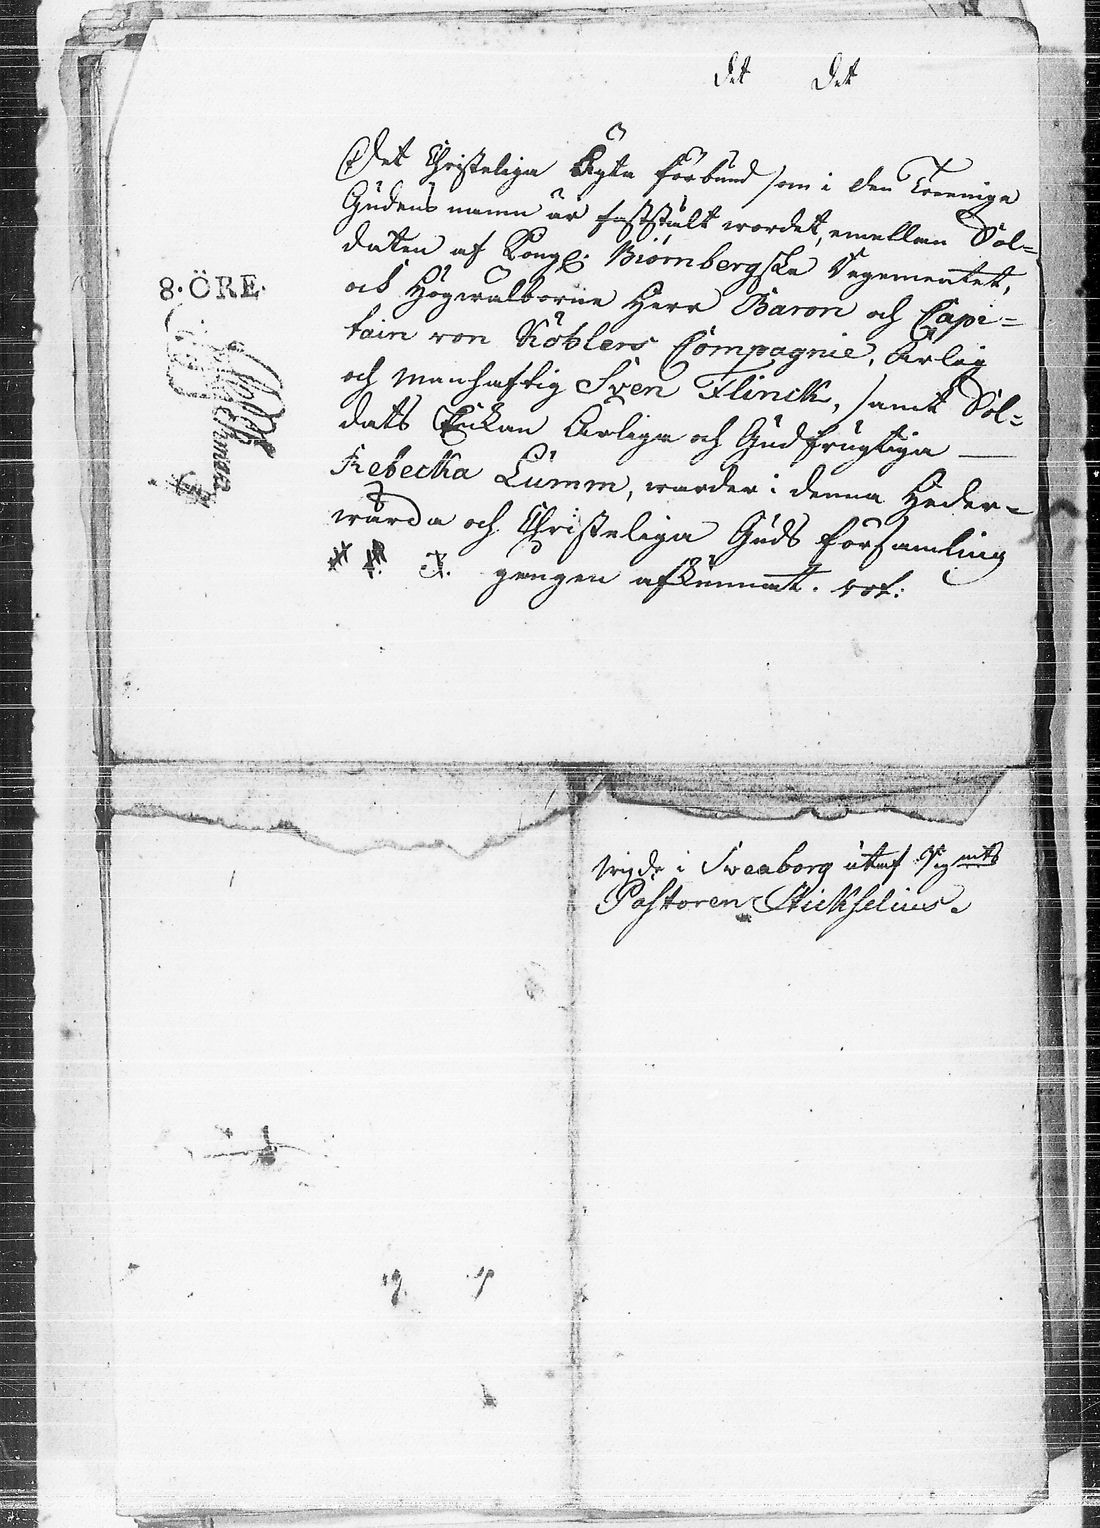 Det Det
Det Christeliga Ägta förbund som i den Treeniga
Gudens namn är faststält wordet, emellan Sol-
daten af Kongl: Biörnbergska Regementet,
och Högwälborne Herr Baron och Capi-
tain von Köhlers Compagnie, Ärlig
och Manhaftig Sven Flinck, samt Sol-
dats Enkan Ärliga och Gudfrugtiga
Rebecka Lumm, warder i denna Heder-
wärda och Christeliga Guds församling
gengen afkunnat.
8·ÖRE·
wigde i Sweaborg utaf Regmts
Pastoren Stickselius.